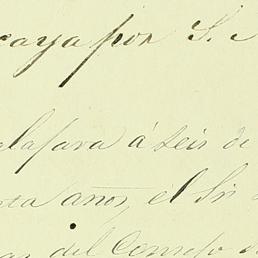 caya por S.
lajara á seis de
nta años, el Sr.
del Consejo